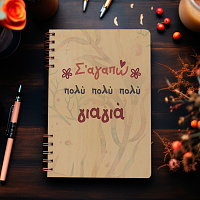 Σ'αγαπώ
πολύ πολύ πολύ
γιαγιά